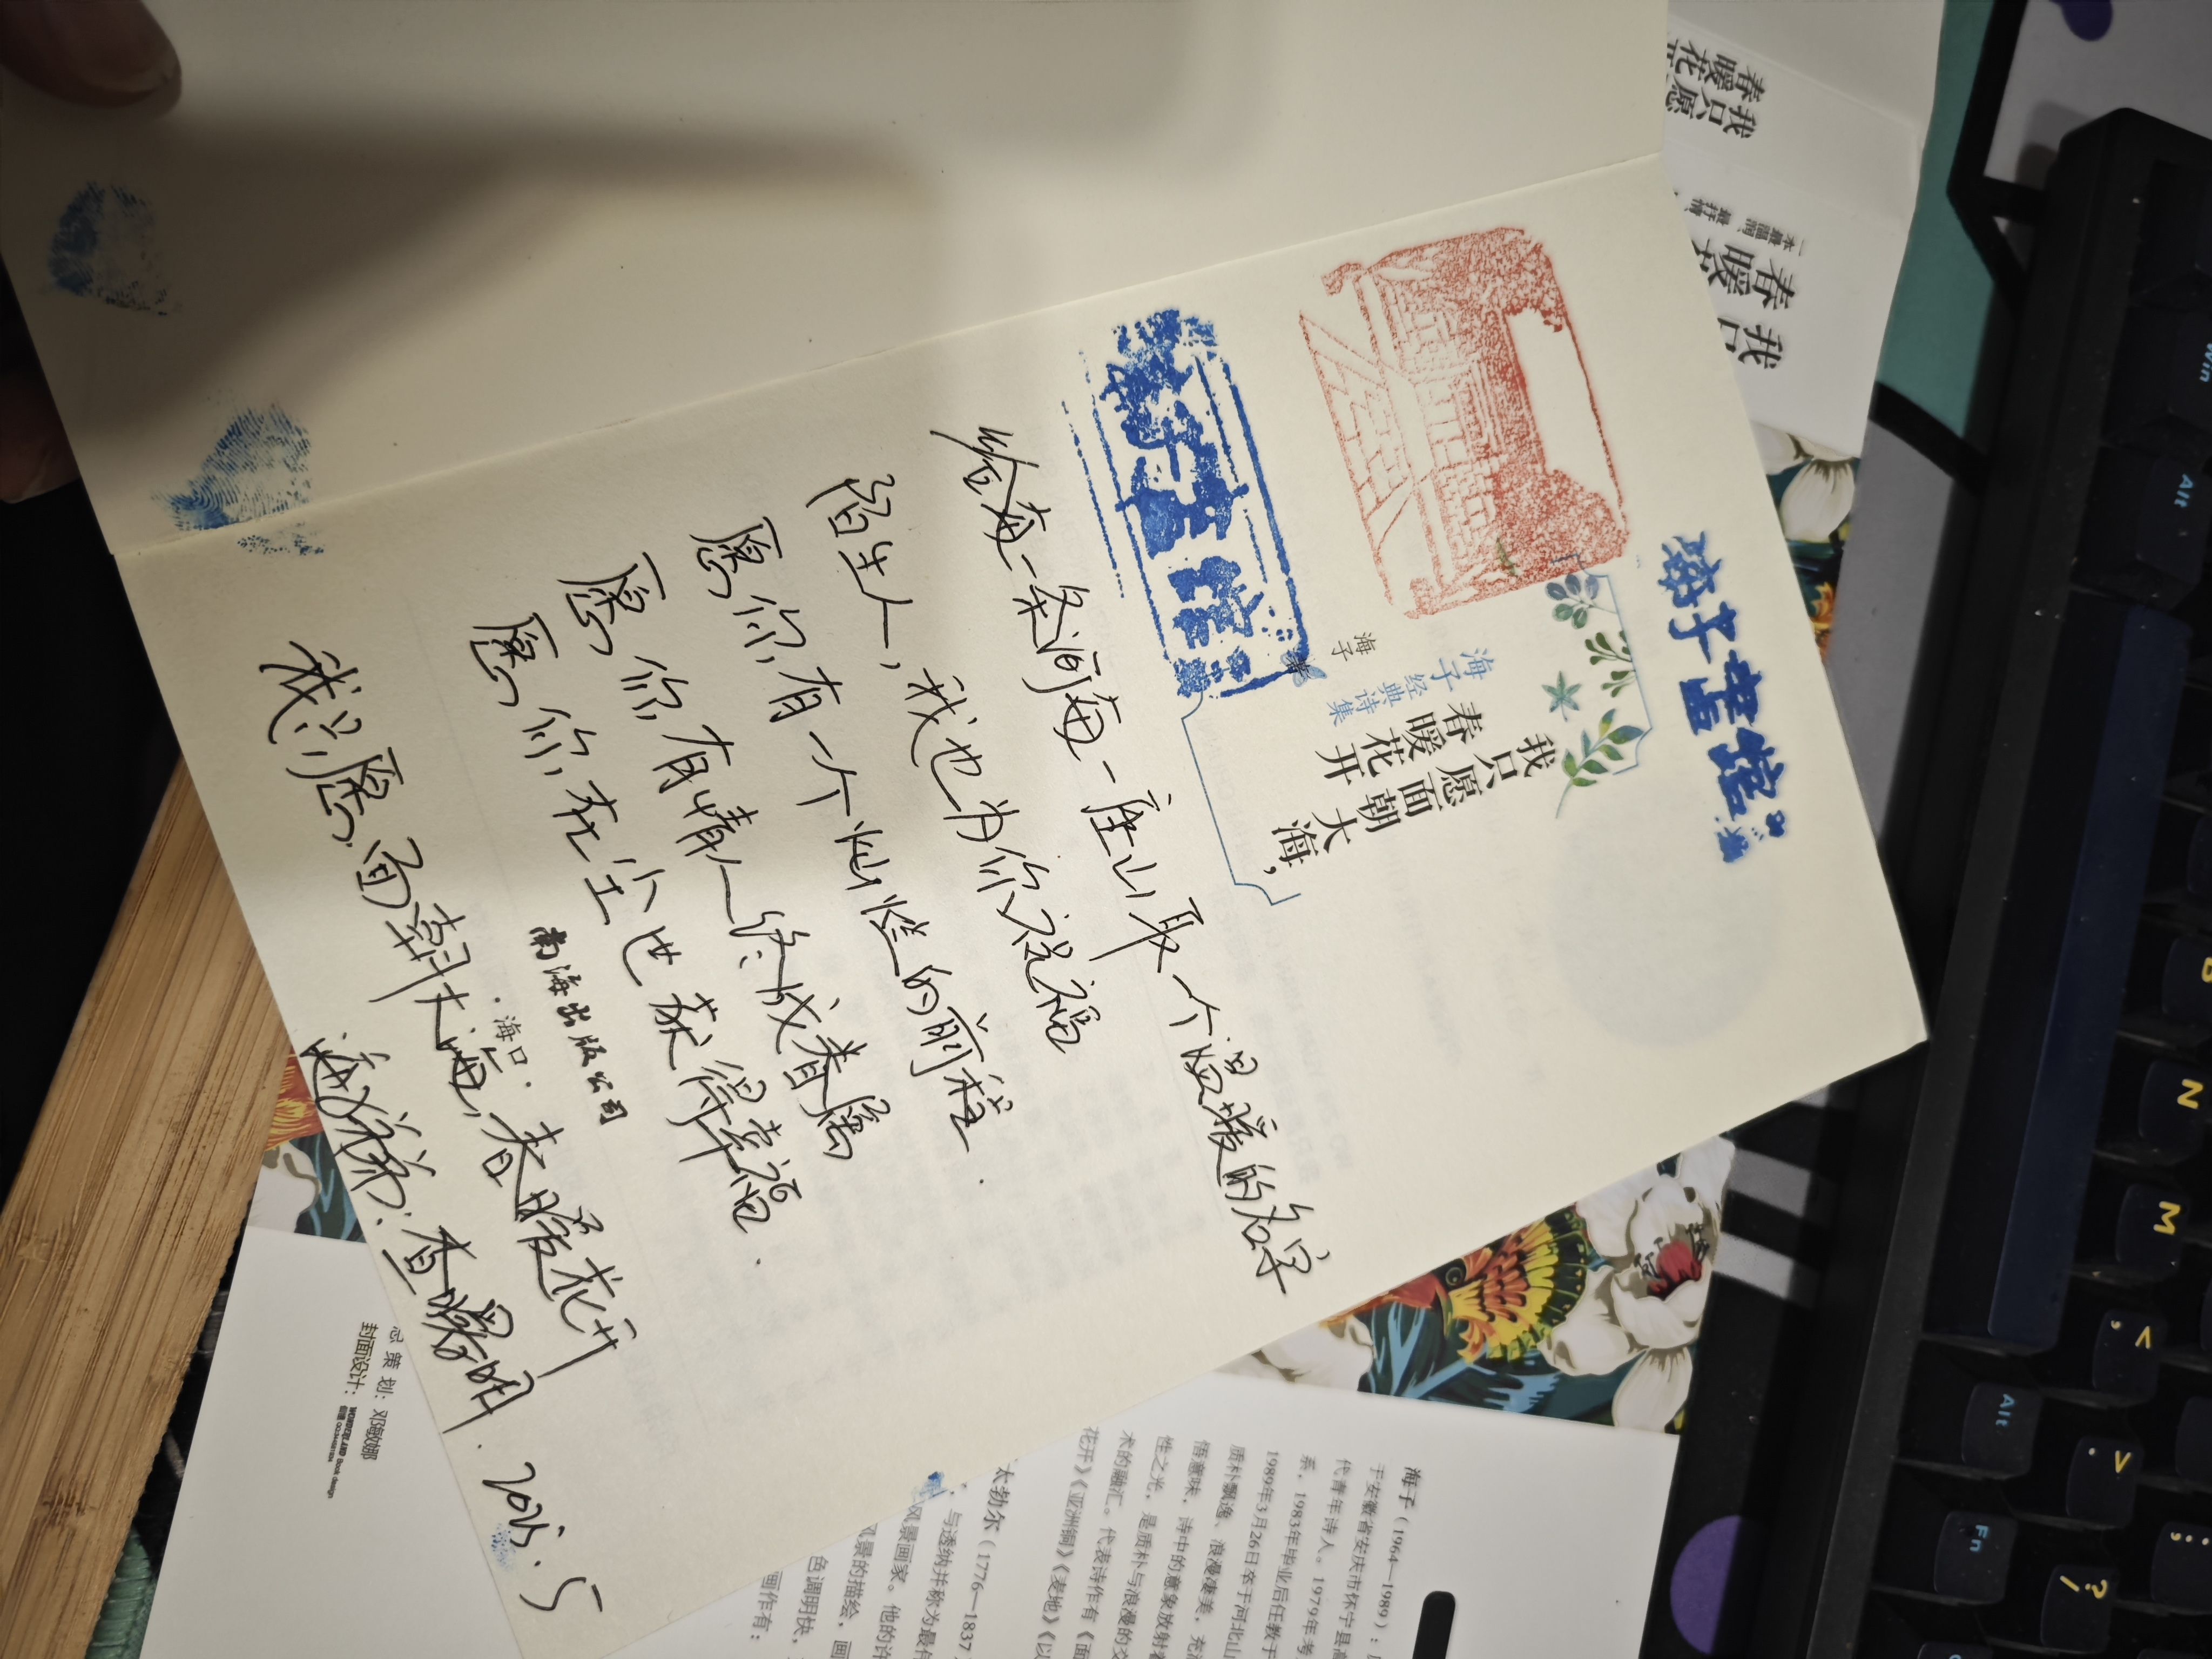 海子书馆
海子
海子经典诗集
我只愿面朝大海，
春暖花开
给每一条河每一座山取一个温暖的名字
陌生人，我也为你祝福
愿你有一个灿烂的前程.
愿你有情人终成眷属
愿你在尘世获得幸福.
我只愿面朝大海，春暖花开
南海出版公司
·海口·
海子弟弟:查曙明. 2025.5
我只愿
春暖花
我只
春暖
总策划：邓敏娜
封面设计：
海子（1964—1989）：
于安徽省安庆市怀宁县高
代青年诗人。1979年考
系，1983年毕业后任教于
1989年3月26日卒于河北山
质朴飘逸、浪漫凄美，充满
悟意味，诗中的意象放射着
性之光，是质朴与浪漫的交
术的融汇。代表诗作有《面
花开》《亚洲铜》《麦地》《以
太勃尔（1776—1837
，与透纳并称为最伟
风景画家。他的许
风景的描绘，画
色调明快，
画作有：
Win
Alt
B
N
M
<
,
>
.
?
/
:
;
Alt
Fn